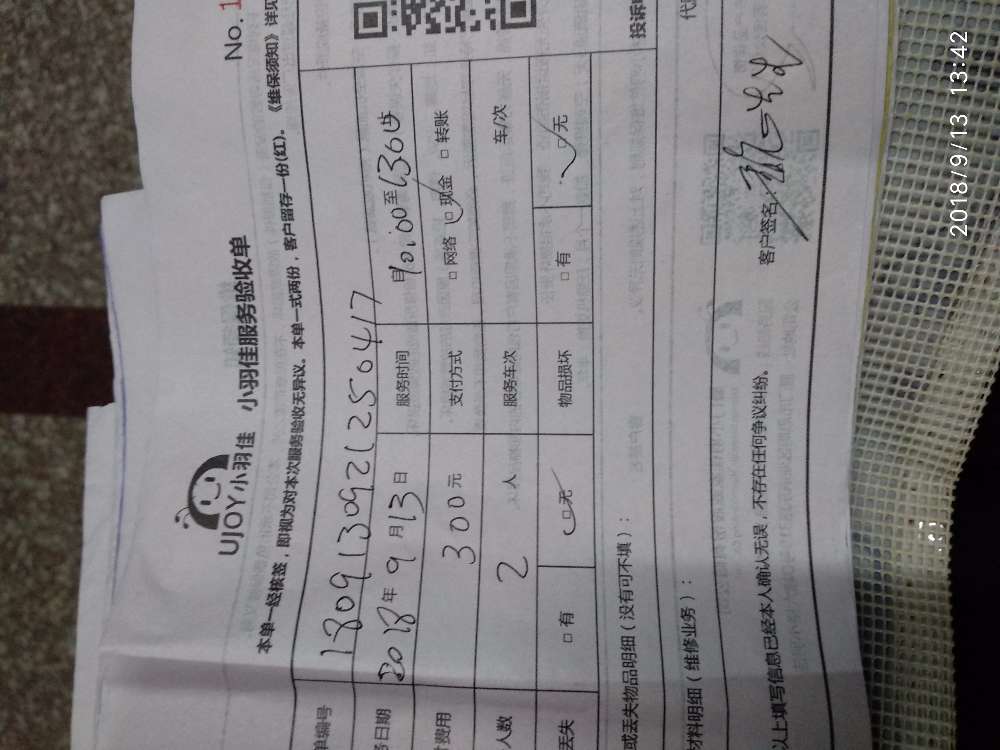 UJOY小羽佳 小羽佳服务验收单
No.1
本单一经核签，即视为对本次服务验收无异议。本单一式两份，客户留存一份(红)。《维保须知》详见
单编号
务日期 2018年9月13日 服务时间 自10:00至
费用 300元 支付方式 □网络 □现金 □转账
人数 2人 服务车次 车/次
丢失 □有 □无 物品损坏 □有 □无
或丢失物品明细（没有可不填）：
投诉
材料明细（维修业务）：
以上填写信息已经本人确认无误，不存在任何争议纠纷。 客户签名
2018/9/13 13:42